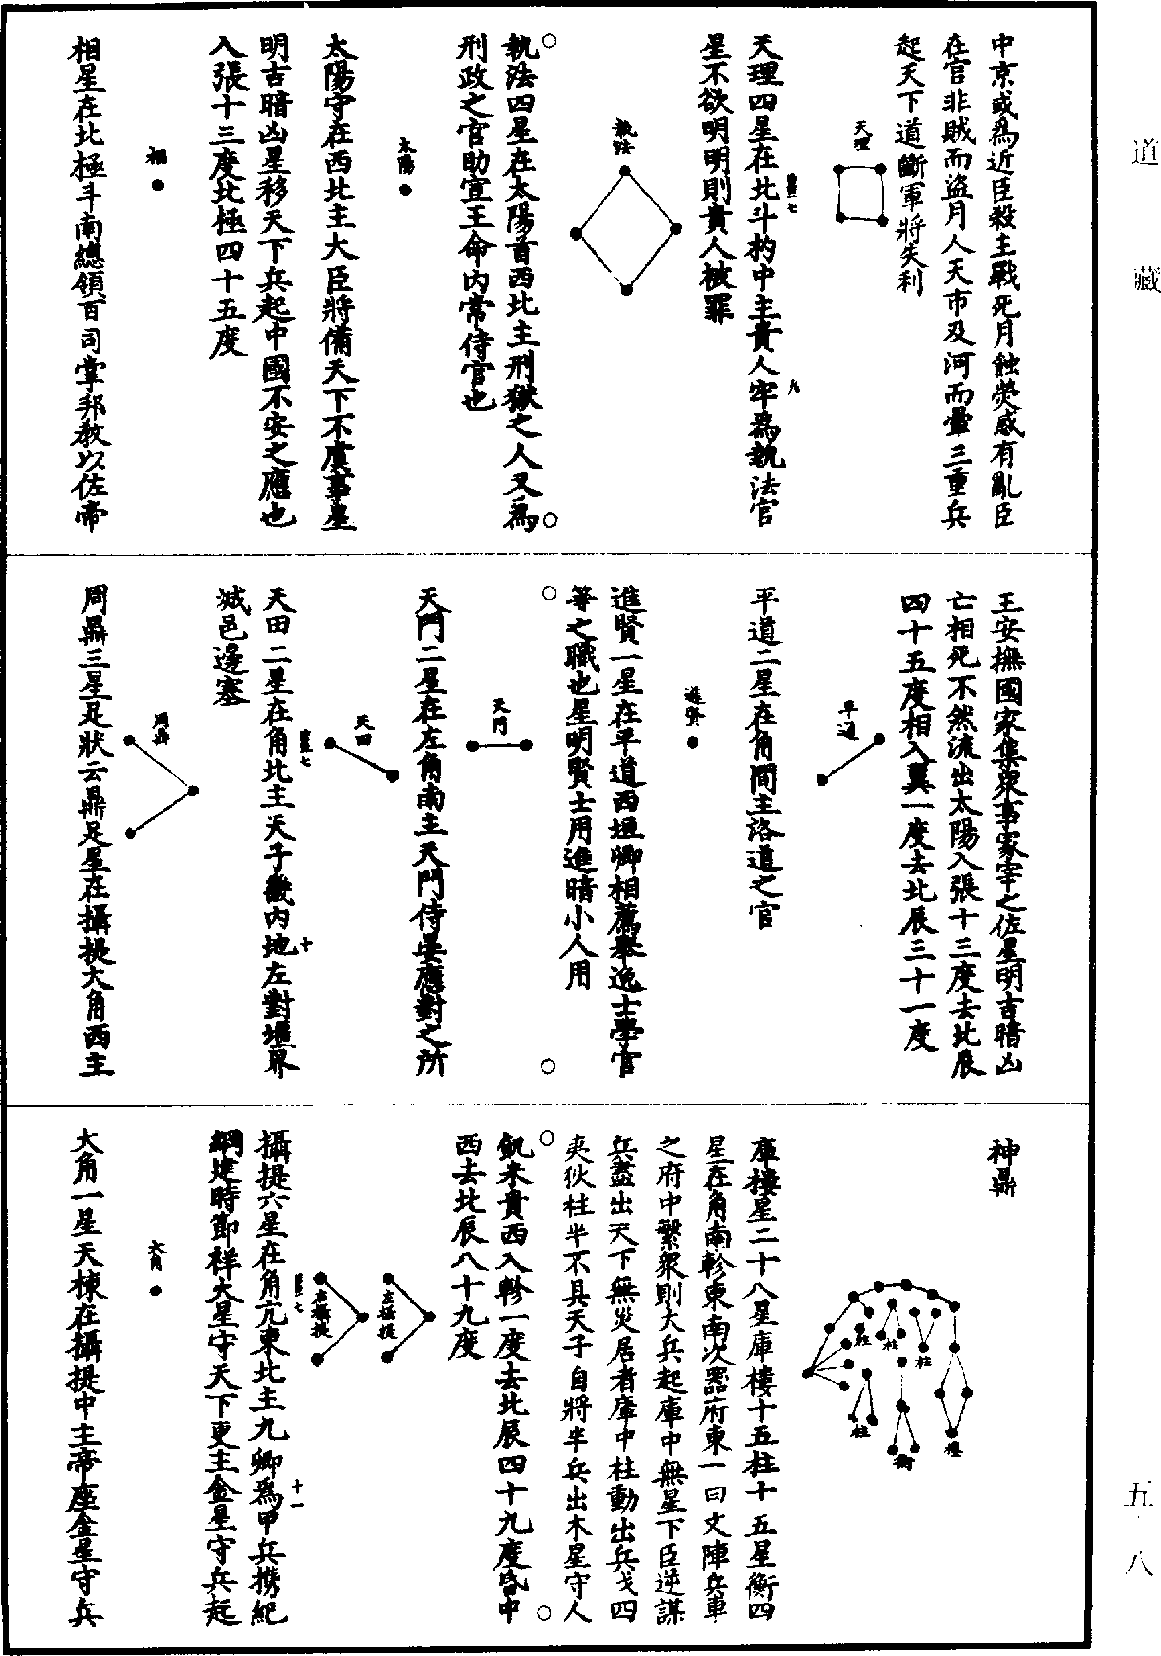 道藏
五·八
中京或為近臣殺主戰死月蝕熒惑有亂臣
在官非賊而盜月人天市及河而暈三重兵
起天下道斷軍將失利
天理
天理四星在北斗杓中主貴人牢為執法官
星不欲明明則貴人被罪
執法
執法四星在太陽首西北主刑獄之人又為
刑政之官助宣王命內常侍官也
太陽
太陽守在西北主大臣將備天下不虞事星
明吉暗凶星移天下兵起中國不安之應也
入張十三度北極四十五度
相
相星在北極斗南總領百司掌邦教以佐帝
王安撫國家集眾事冢宰之佐星明吉暗凶
亡相死不然流出太陽入張十三度去北辰
四十五度相入翼一度去北辰三十一度
平道
平道二星在角間主洛道之官
進賢
進賢一星在平道西垣卿相薦舉逸士學官
等之職也星明賢士用進暗小人用
天門
天門二星在左角南主天門侍晏應對之所
天田
天田二星在角北主天子畿內地左對壃界
減邑邊塞
周鼎
周鼎三星足狀云鼎足星在攝提大角西主
神鼎
柱
柱
柱
柱
衡
樓
庫樓星二十八星庫樓十五柱十五星衡四
星在角南軫東南次器府東一曰文陣兵車
之府中繁眾則大兵起庫中無星下臣逆謀
兵盡出天下無災居者庫中柱動出兵戈四
夾狄柱半不具天子自將半兵出木星守人
飢米貴西入軫一度去北辰四十九度昏中
西去北辰八十九度
左攝提
右攝提
攝提六星在角亢東北主九卿為甲兵攜紀
綱建時節祥火星守天下更主金星守兵起
大角
大角一星天棟在攝提中主帝座金星守兵
七
九
七
十
七
十一